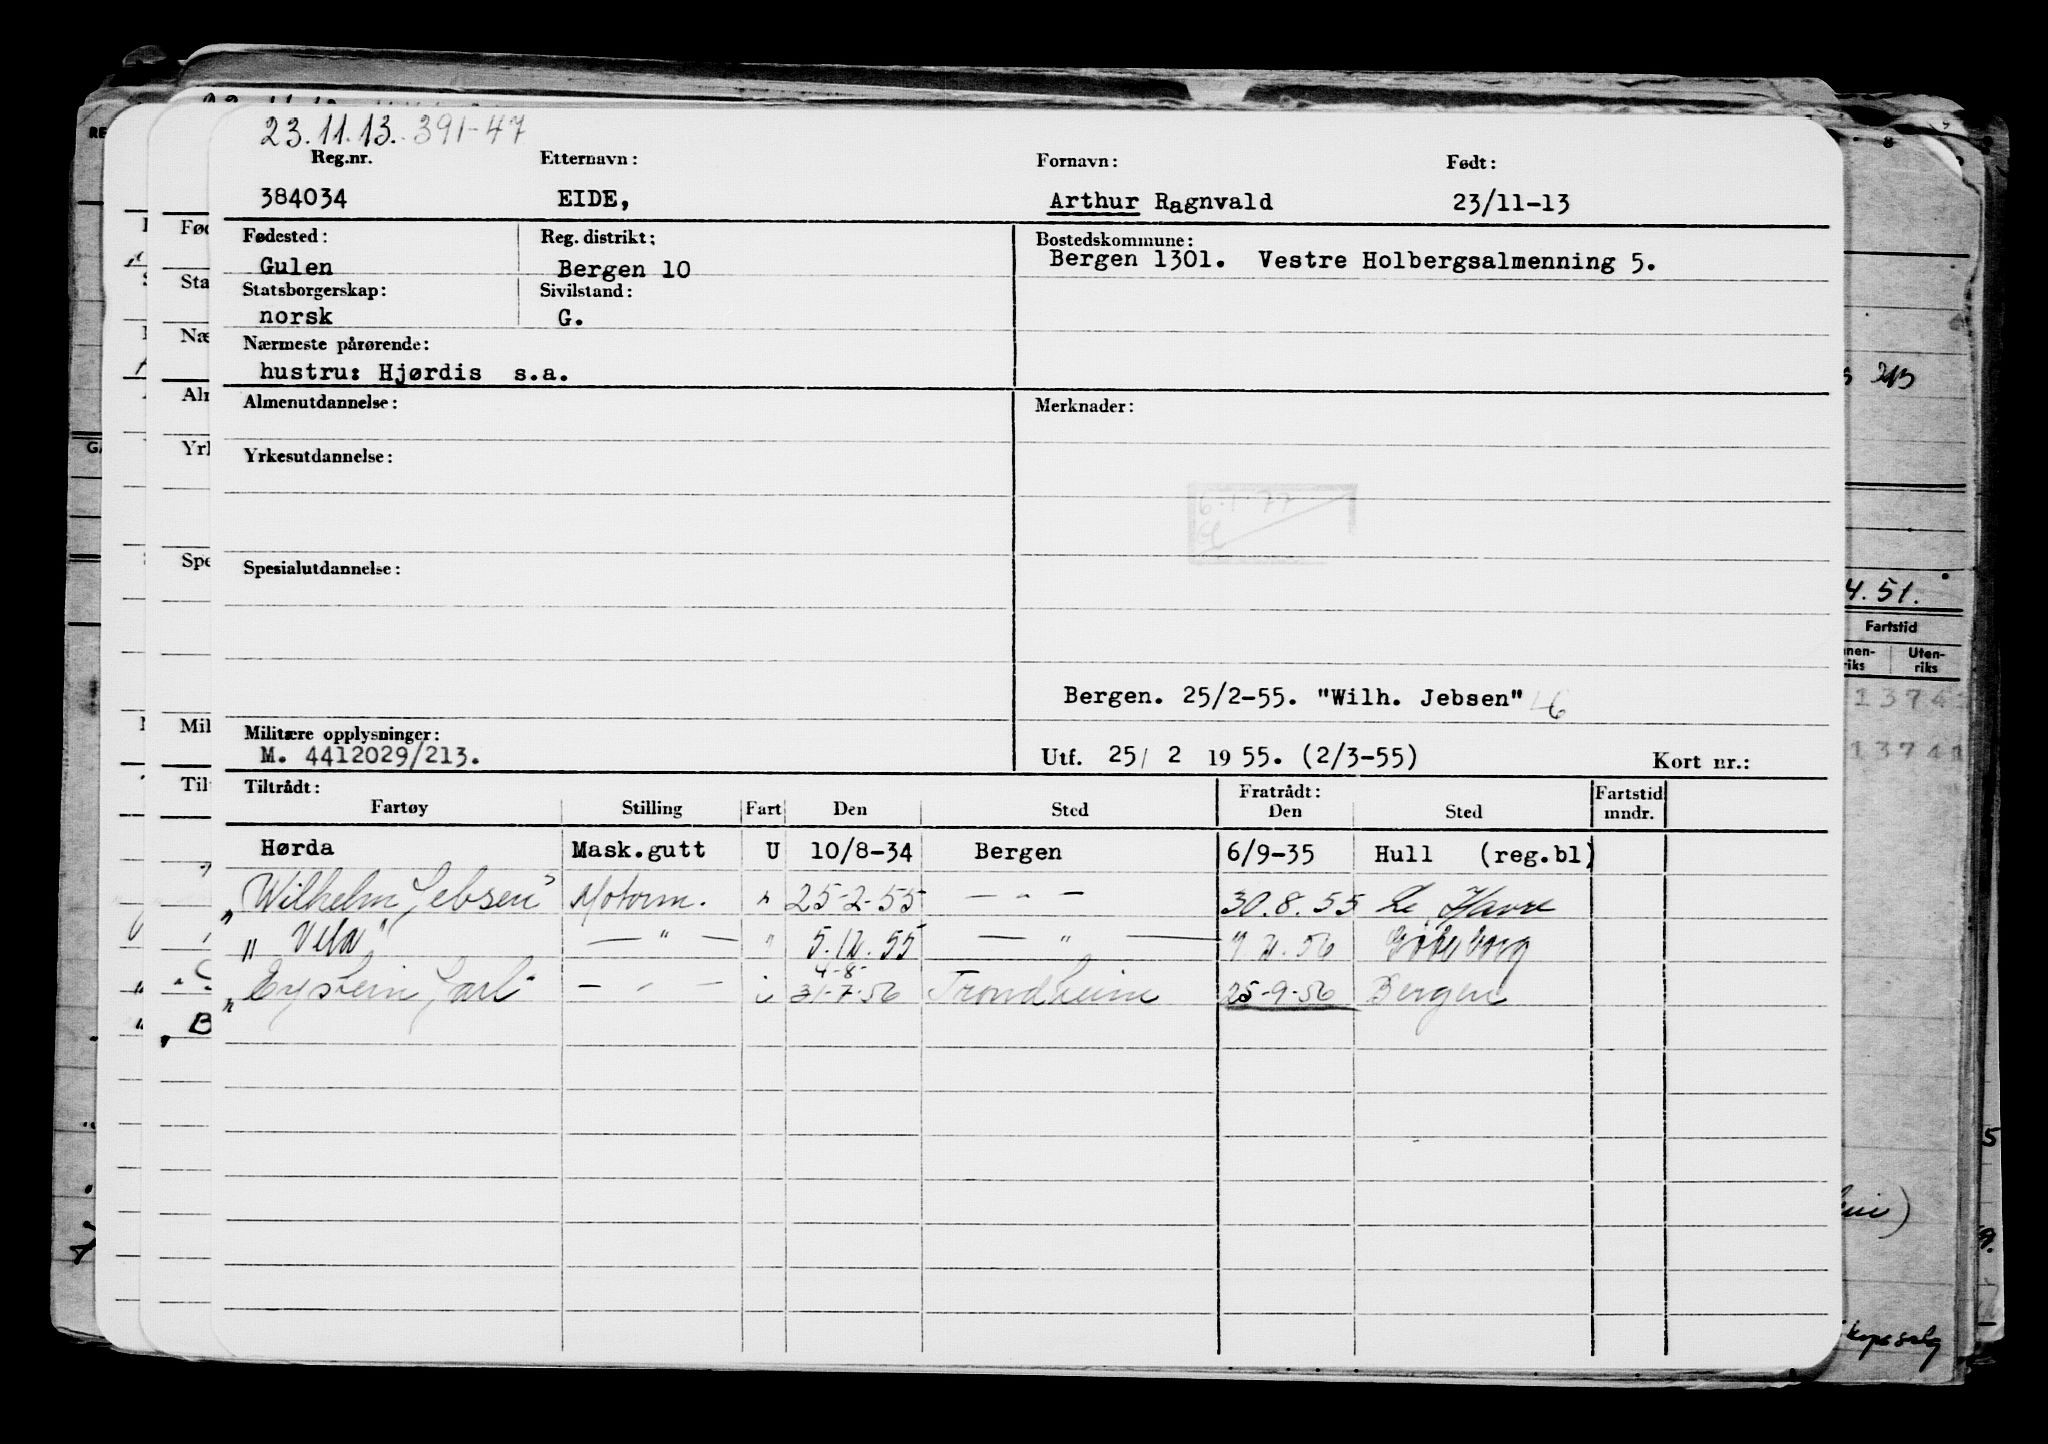 23.11.13. 391-47
Reg.nr. Etternavn: Fornavn: Født:
384034 EIDE, Arthur Ragnvald 23/11-13
Fødested: Reg. distrikt: Bostedskommune:
Gulen Bergen 10 Bergen 1301. Vestre Holbergsalmenning 5.
Statsborgerskap: Sivilstand:
norsk G.
Nærmeste pårørende:
hustru: Hjørdis s.a.
Almenutdannelse: Merknader:
Yrkesutdannelse:
6-1-77
Spesialutdannelse:
Bergen. 25/2-55. "Wilh. Jebsen"
Militære opplysninger:
M. 4412029/213. Utf. 25/ 2 1955. (2/3-55) Kort nr.:
Tiltrådt: Fratrådt: Fartstid
Fartøy Stilling Fart Den Sted Den Sted mndr.
Hørda Mask.gutt U 10/8-34 Bergen 6/9-35 Hull (reg.bl)
"Wilhelm Jebsen" Motorm. " 25-2-55 — " — 30.8.55 Le Havre
"Vela" — " — " 5.12.55 — " — 7.2.56 Göteborg
4-8-
"Eystein Jarl" — " — i 31-7-56 Trondheim 25-9-56 Bergen
RE
Fød
Sta
Næ
Alr
Yrl
Spe
Mil
Til
4.51.
Fartstid
Uten-
riks
13741